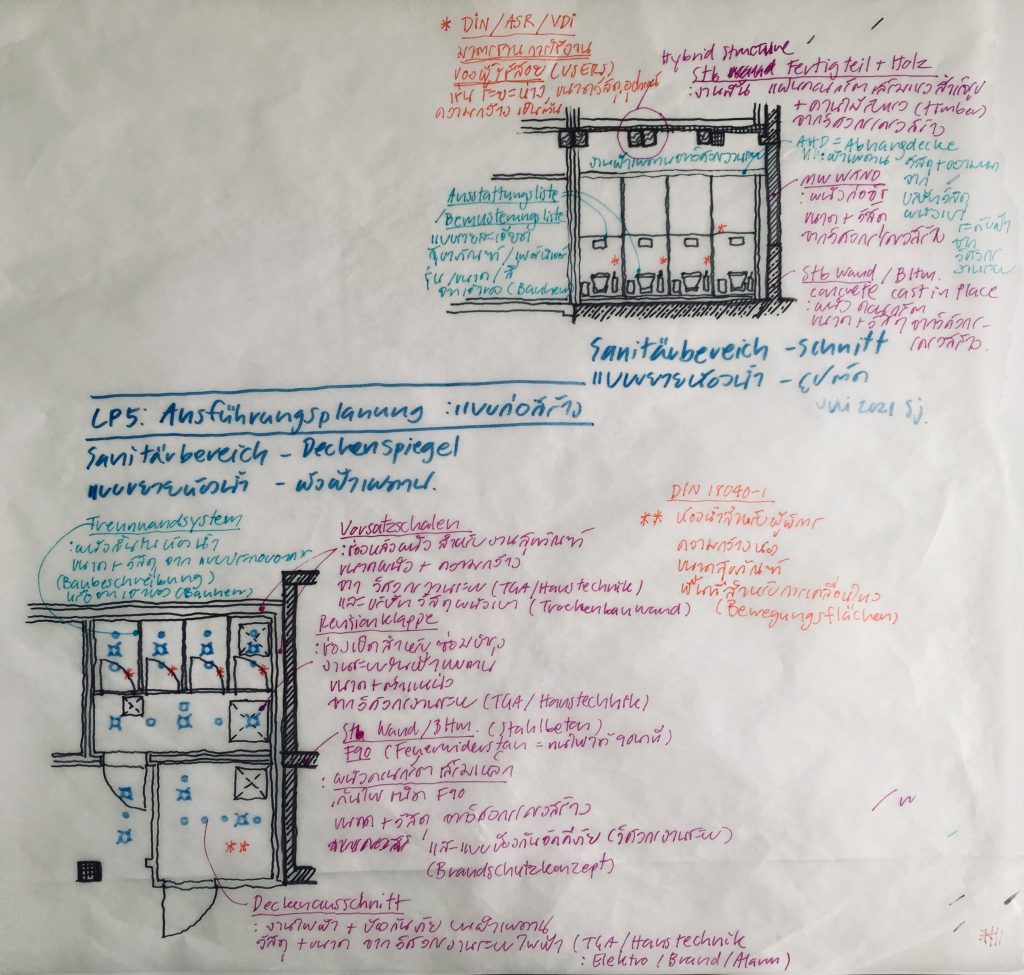 * DIN/ASR/VDI
มาตรฐานการใช้งาน
ของผู้ใช้สอย (USERS)
เช่น ระยะห่าง ขนาดวัสดุอุปกรณ์
ความกว้าง เป็นต้น
Hybrid Structure
Stb Fertigteil + Holz
: งานพื้น แผ่นคอนกรีตเสริมแรงสำเร็จรูป
+ คานไม้ (timber)
จากวิศวกรโครงสร้าง
AHD = Abhangdecke
: ฝ้าเพดาน วัสดุ + ความหนา
จาก
บริษัทวัสดุ
ผนังเบา
ระดับฝ้า
จาก
วิศวกร
งานระบบ
MW WAND
: ผนังก่ออิฐ
ขนาด + วัสดุ
จากวิศวกรโครงสร้าง
Stb Wand / BHm.
concrete cast in place
: ผนังคอนกรีต
ขนาด + วัสดุ จากวิศวกร-
โครงสร้าง.
งานฝ้าเพดานจากวิศวกรงานระบบ
Ausstattungsliste
/Bemusterungsliste
แบบรายละเอียด
สุขภัณฑ์ / เฟอร์นิเจอร์
รุ่น / ขนาด / สี
จากเจ้าของ (Bauherr)
Sanitärbereich - Schnitt
แบบขยายห้องน้ำ - รูปตัด
Juni 2021 Sj.
LP5: Ausführungsplanung : แบบก่อสร้าง
Sanitärbereich - Deckenspiegel
แบบขยายห้องน้ำ - ผังฝ้าเพดาน.
Trennwandsystem
: ผนังกั้นในห้องน้ำ
ขนาด + วัสดุ จาก แบบประกอบอาคาร
(Baubeschreibung)
หรือจากเจ้าของ (Bauherr)
Vorsatzschalen
: ช่องหลังผนัง สำหรับงานสุขภัณฑ์
ขนาดผนัง + ความกว้าง
จาก วิศวกรงานระบบ (TGA/Haustechnik)
และบริษัท วัสดุผนังเบา (Trockenbauwand)
Revisionklappe
: ช่องเปิดสำหรับซ่อมบำรุง
งานระบบในฝ้าเพดาน
ขนาด + ตำแหน่ง
จากวิศวกรงานระบบ (TGA/Haustechnik)
Stb Wand/BHm. (Stahlbeton)
F90 (Feuerwiderstan = ทนไฟได้ 90 นาที)
: ผนังคอนกรีตเสริมเหล็ก
กันไฟ ชนิด F90
ขนาด + วัสดุ จากวิศวกรโครงสร้าง
และแบบป้องกันอัคคีภัย (วิศวกรงานระบบ)
(Brandschutzkonzept)
Deckenausschnitt
: งานไฟฟ้า + ป้องกันภัย บนฝ้าเพดาน
วัสดุ + ขนาด จากวิศวกรงานระบบไฟฟ้า (TGA/Haustechnik
: Elektro (Brand/Alarm)
DIN 18040-1
** ห้องน้ำสำหรับผู้พิการ
ความกว้างห้อง
ขนาดสุขภัณฑ์
พื้นที่สำหรับการเคลื่อนไหว
(Bewegungsflächen)